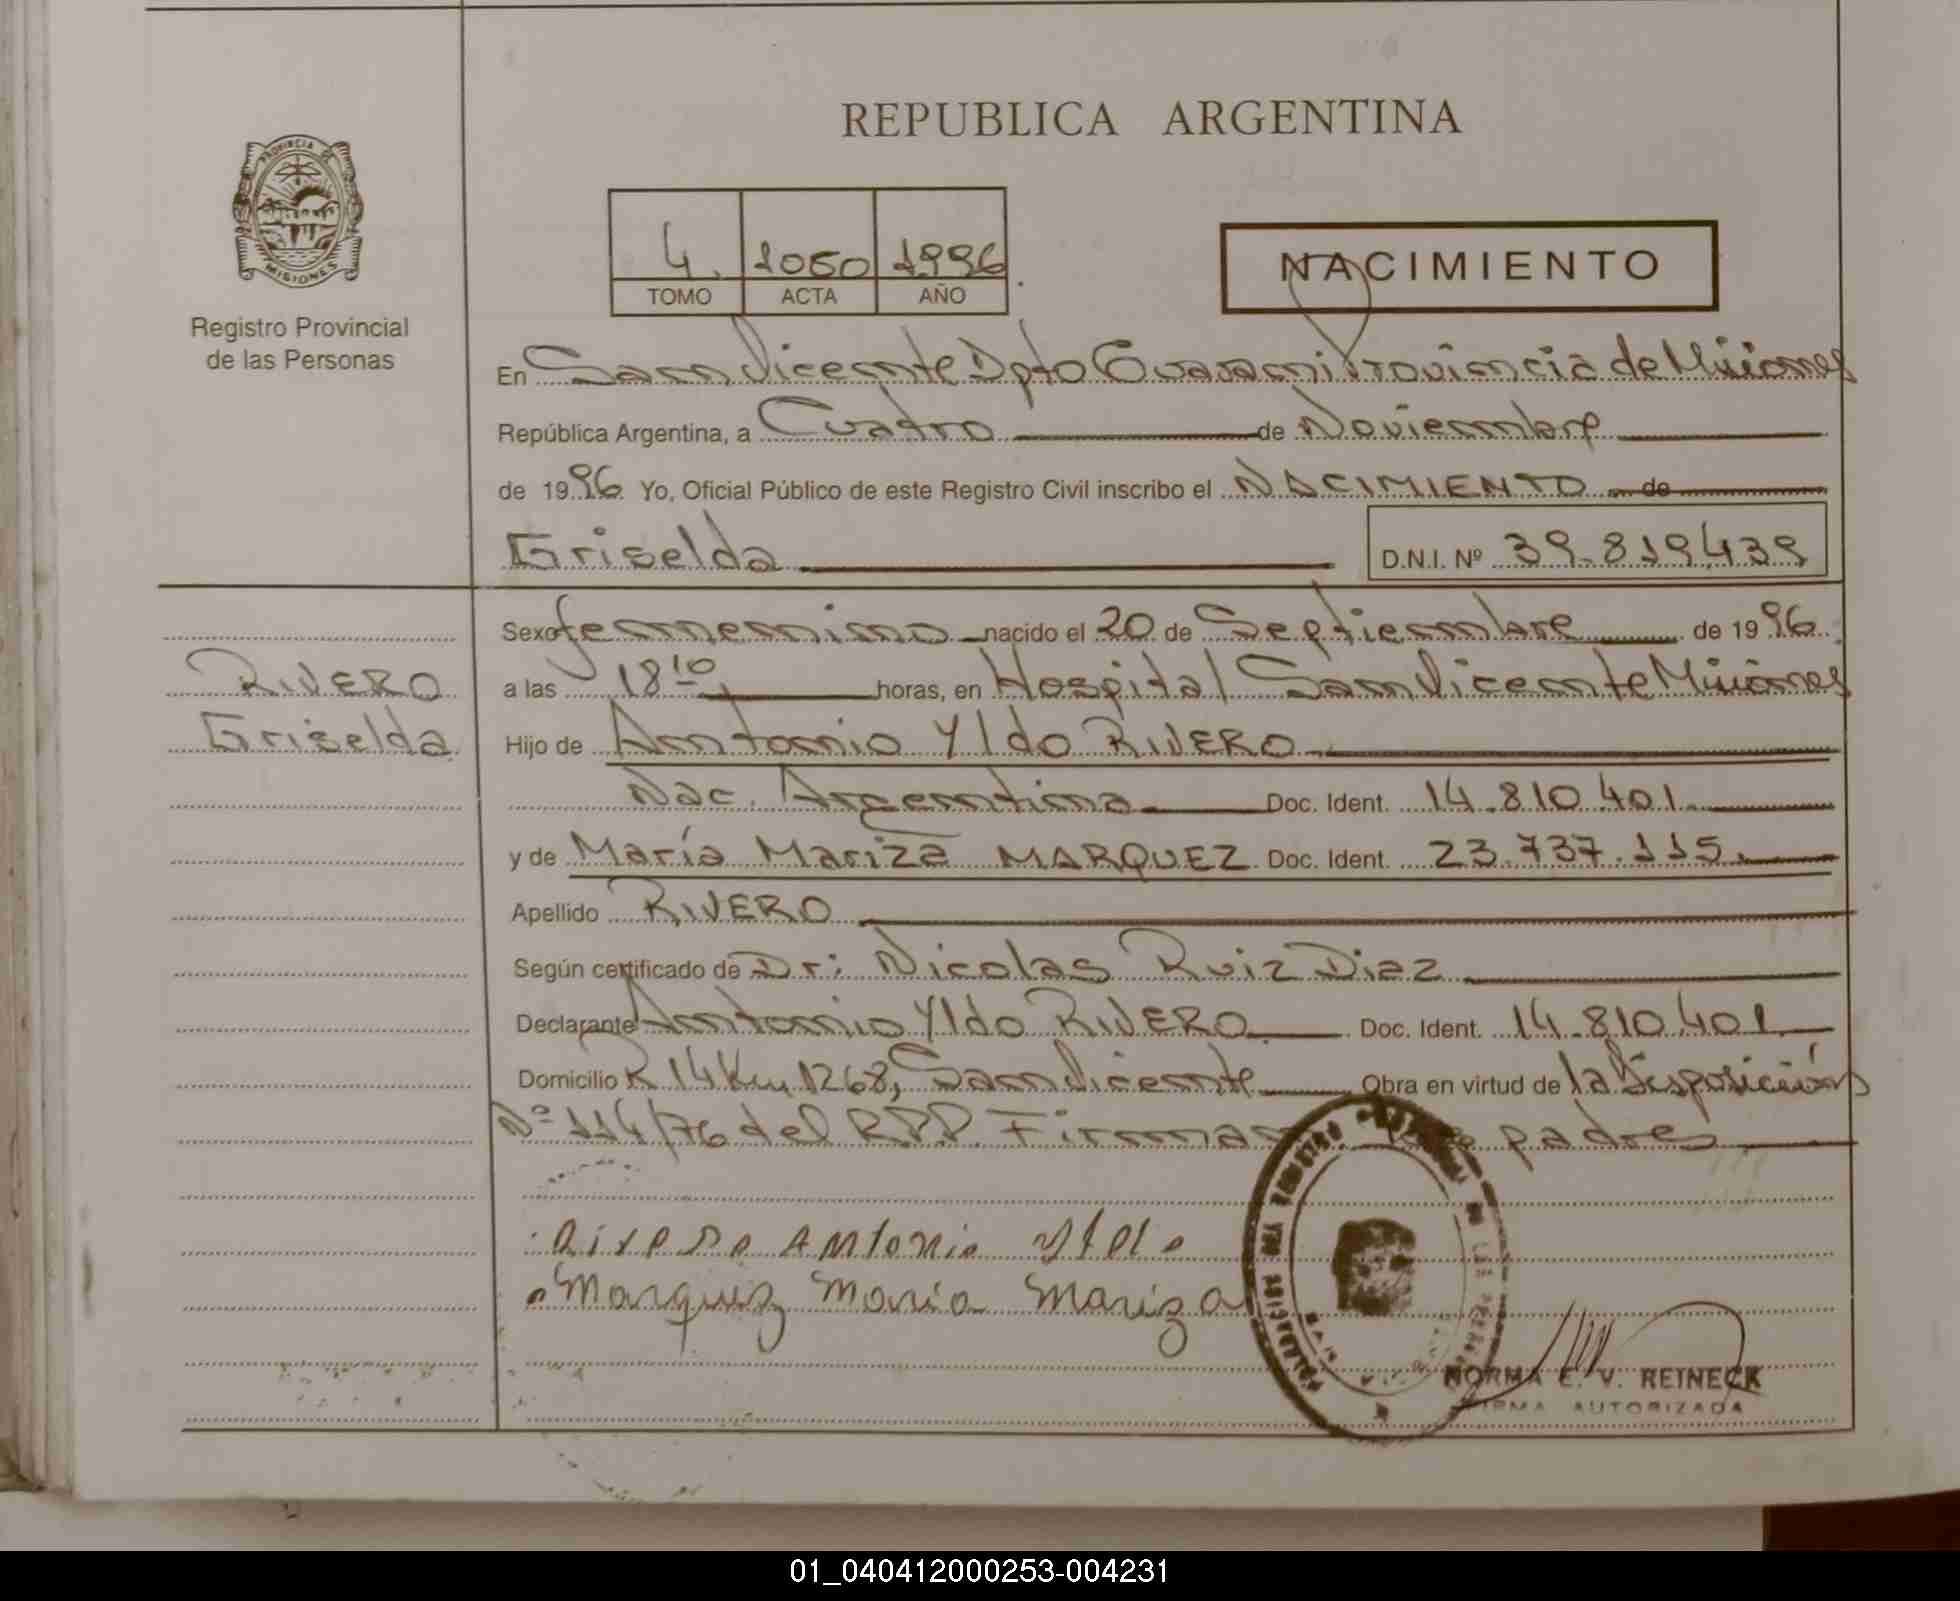 REPUBLICA ARGENTINA
PROVINCIA DE
MISIONES
Registro Provincial
de las Personas
4. 1050 1996
TOMO ACTA AÑO
NACIMIENTO
En San Vicente Dpto Guarani Provincia de Misiones
República Argentina, a Cuatro de Noviembre
de 1996 Yo, Oficial Público de este Registro Civil inscribo el NACIMIENTO de
Griselda D.N.I. Nº 39.819.439
Sexo femenino nacido el 20 de Septiembre de 1996
RIVERO
Griselda
a las 18 10 horas, en Hospital San Vicente Misiones
Hijo de Antonio Yldo RIVERO
Nac. Argentina Doc. Ident. 14.810.401
y de María Mariza MARQUEZ Doc. Ident. 23.737.115
Apellido RIVERO
Según certificado de Dr: Nicolas Ruiz Diaz
Declarante Antonio Yldo RIVERO Doc. Ident. 14.810.401
Domicilio R 14 Km 1268, San Vicente Obra en virtud de la Disposición
Nº 114/76 del R.P.P. Firman los padres
Rivero Antonio Yldo
Marquez Maria Mariza
NORMA E. V. REINECK
FIRMA AUTORIZADA
01_040412000253-004231